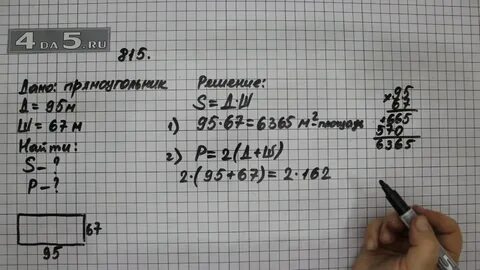 4 DA 5.RU
815.
Дано: прямоугольник
Д = 95м
Ш = 67 м
Найти:
S - ?
P - ?
67
95
Решение:
S = Д·Ш
1) 95·67=6365 м² площадь
2) P = 2(Д+Ш)
2·(95+67)= 2·162
×95
67
+665
570
6365